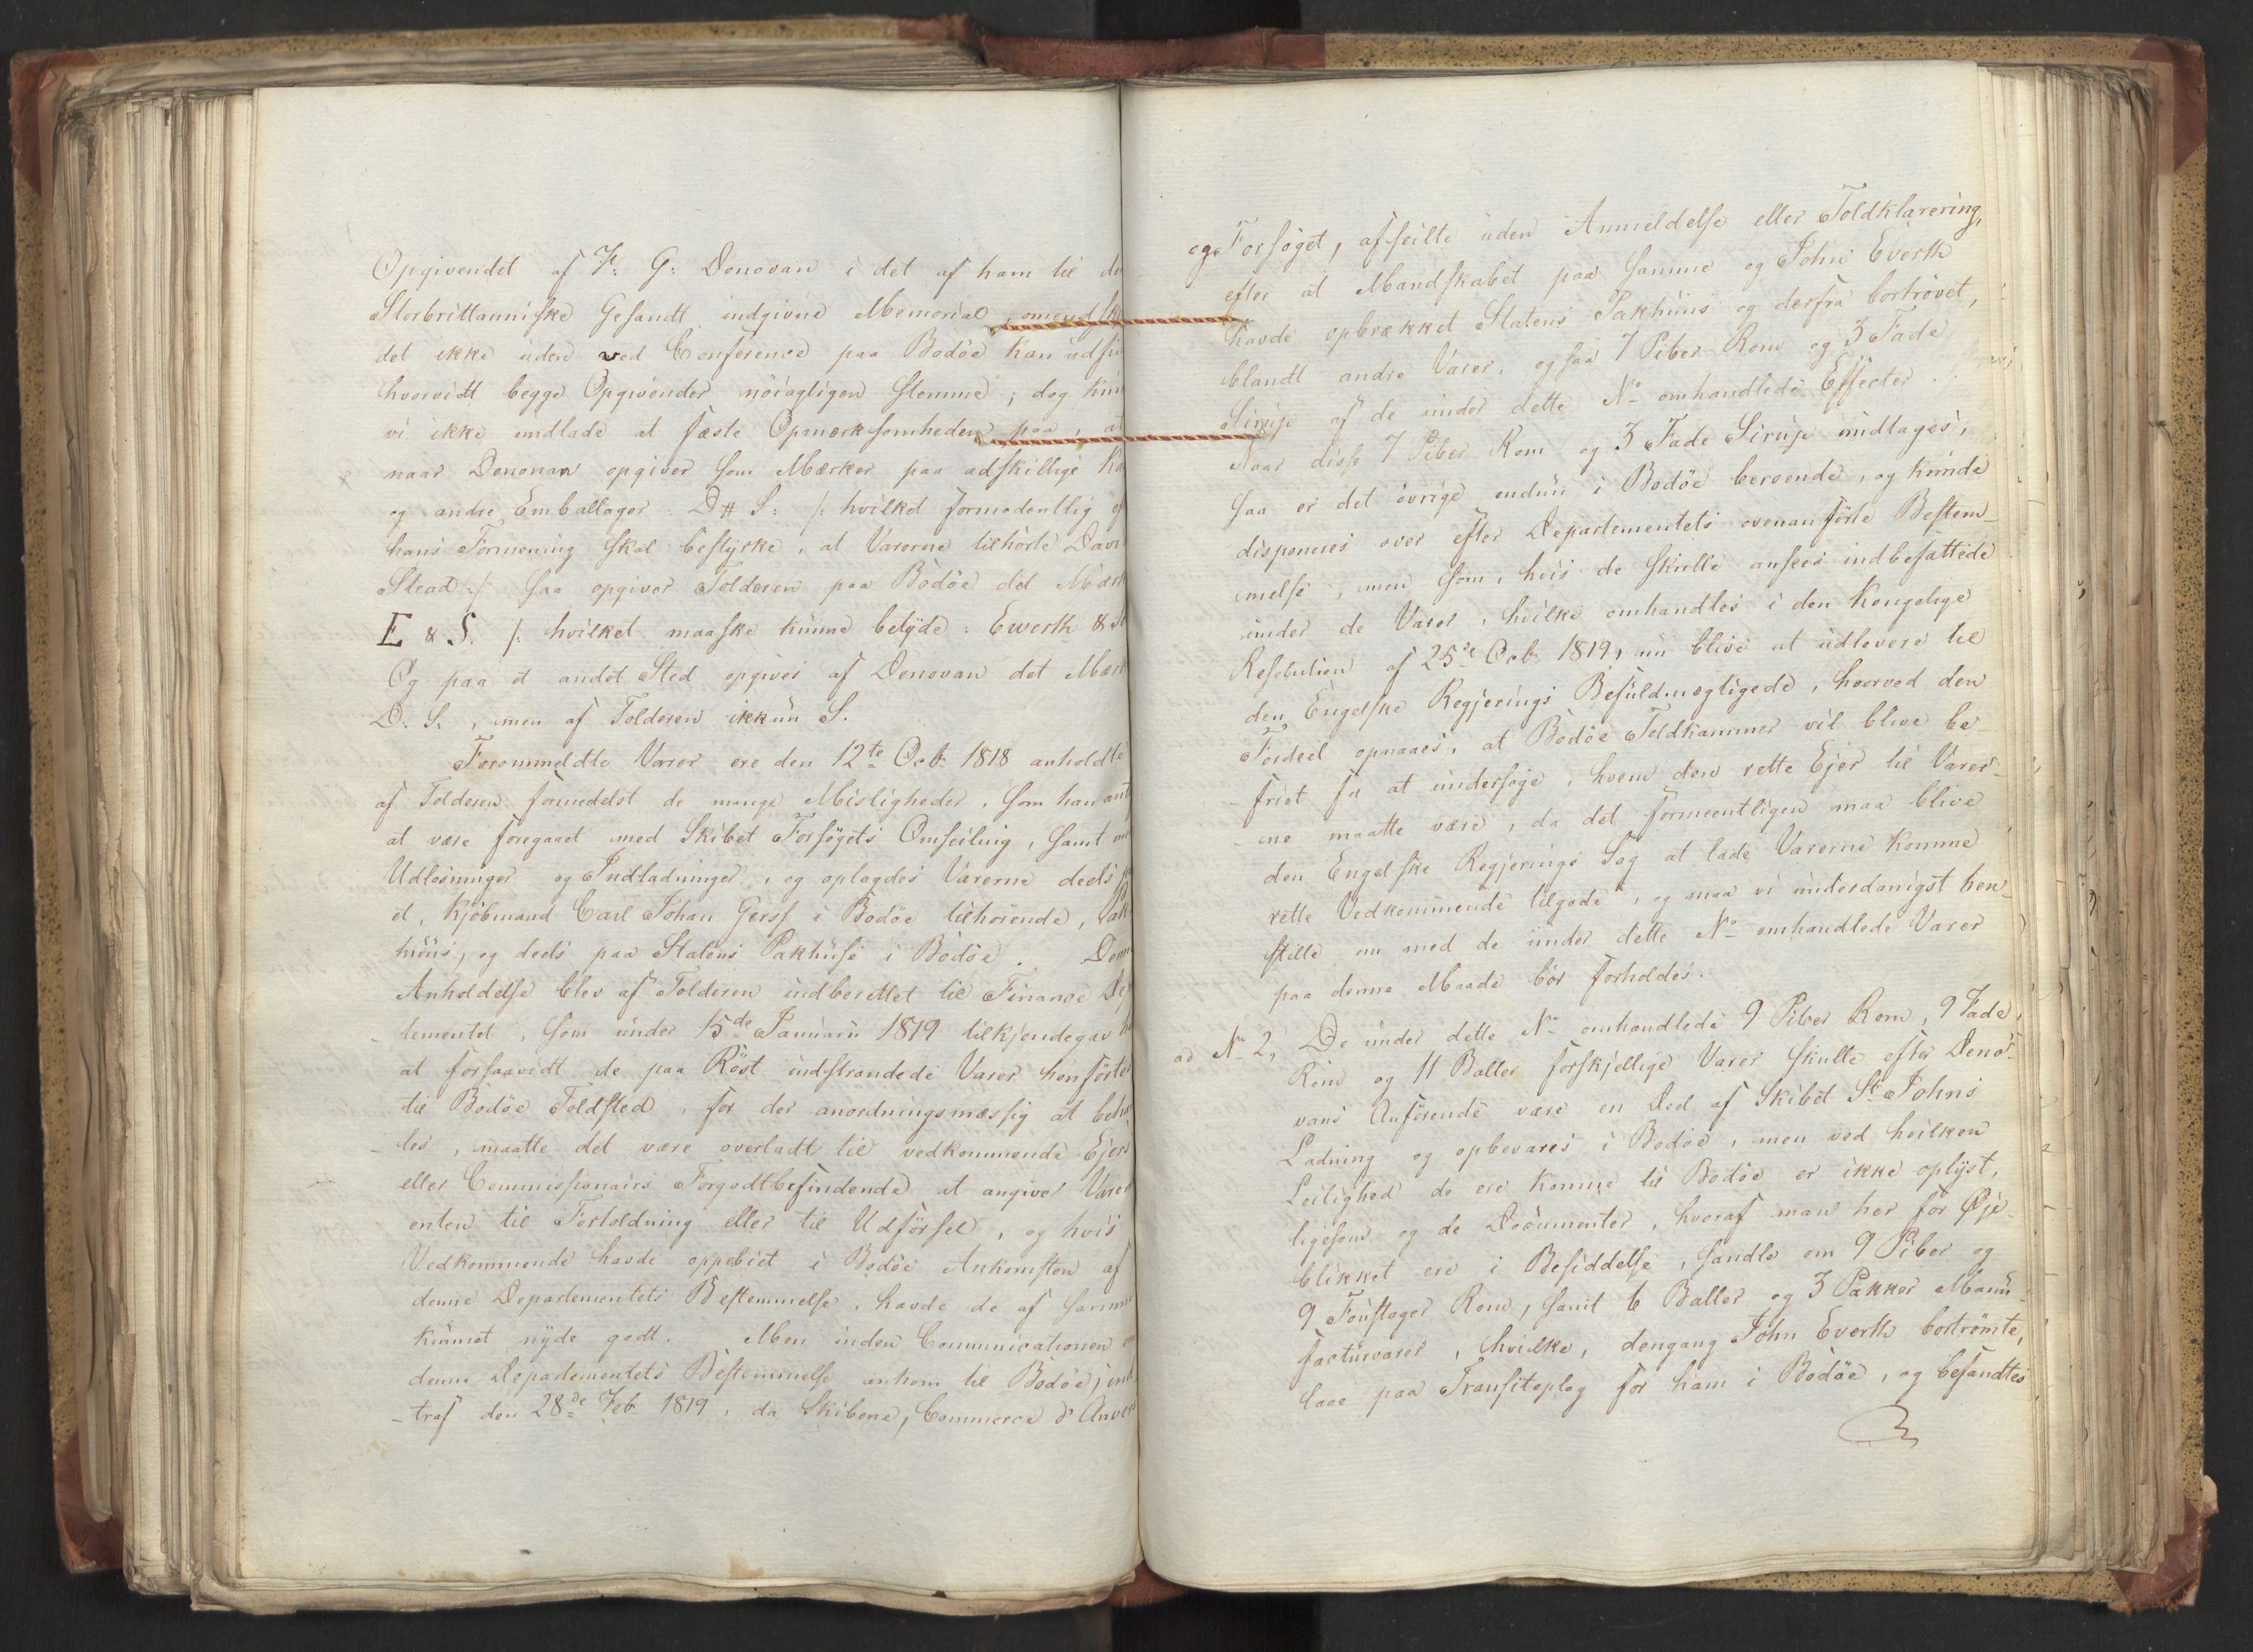 Opgivendet af F: G: Donovan i det af ham til de
Storbrittanniske Gesandt indgivne Memorial, omendsk
det ikke uden ved Conference paa Bodöe kan udfin
hvorvidt begge Opgivender nöiagtigen stemme; dog kun
vi ikke undlade at fæste Opmærksomheden paa, at
naar Denovan opgiver som Mærker paa adskillige Ka
og andre Emballager D# S: /: hvilket formodentlig ef
hans Formening skal bestyrke, at Varerne tilhörte Davi
Stead :/ saa opgiver Tolderen paa Bodöe det Mærk
E & S. /: hvilket maaske kunne betyde: Ewerth & S
Og paa et andet Sted opgives af Denovan det Mærk
D. S., men af Tolderen ikkun S.
Foromméldte Varer ere den 12te Octb: 1818 anholdte
af Tolderen formedelst de mange Misligheder, som han ant
at være foregaaet med Skibet Forsögets Omseiling, samt me
Udlosninger og Indladninger, og oplagdes Varerne deels p
et, Kjöbmand Carl Johan Gersf i Bodöe tilhörende, Pak
huus, og deels paa Statens Pakhuse i Bodöe. Denn
Anholdelse blev af Tolderen indberettet til Finance De
tementet, som under 15de Januarii 1819 tilkjendegav h
at forsaavidt de paa Röst indstrandede Varer henförte
til Bodöe Toldsted, for der anordningsmæssig at beha
les, maatte det være overladt til vedkommende Ejer
eller Commissionairs Forgodtbefindende at angive Varer
enten til Fortoldning eller til Udförsel, og hvis
Vedkommende havde oppebiet i Bodöe Ankomsten af
denne Departementets Bestemmelse, havde de af samme
kunnet nyde godt. Men inden Communicationen
denne Departementets Bestemmelse ankom til Bodöe, ind
-traf den 28de Feb 1819, da Skibene, Commerce d'Anver
og Forsöget, afseilte uden Anmeldelse eller Toldklarering,
efter at Mandskabet paa samme og John Everth
havde opbrækket Statens Pakhuus og derfra bortrövet,
blandt andre Varer, ogsaa 7 Piber Rom og 3 Fade
Sirup af de under dette No omhandlede Effecter.
Naar disse 7 Piber Rom og 3 Fade Sirup undtages,
saa er det övrige endnu i Bodöe beroende, og kunde
disponeres over efter Departementets ovenanförte Bestem-
melse, men som, hvis de skulle ansees indbefattede
under de Varer, hvilke omhandles i den Kongelige
Resolution af 25de Octb. 1819, nu blive at udlevere til
den Engelske Regjerings Befuldmægtigede, hvorved den
Fordeel opnaaes, at Bodöe Toldkammer vil blive be-
-friet for at undersöge, hvem den rette Ejer til Varer-
-ne maatte være, da det formeentligen maa blive
den Engelske Regjerings Sag at lade Varerne komme
rette Vedkommende tilgode, og maa vi underdanigst hen-
stille om med de under dette No omhandlede Varer
paa denne Maade bör forholdes.
ad No 2, De under dette No omhandlede 9 Piber Rom, 9 Fade
Rom og 11 Baller forskjellige Varer skulle efter Deno-
vans Anförende være en Deel af Skibet St Johns
Ladning og opbevares i Bodöe, men ved hvilken
Leilighed de ere komne til Bodöe er ikke oplyst,
ligesom og de Documenter, hvoraf man her for Øje-
blikket ere i Besiddelse, handle om 9 Piber og
9 Foustager Rom, samt 6 Baller og 3 Pakker Manu-
facturvarer, hvilke, dengang John Everth bortrömte,
laae paa Transitoplag for ham i Bodöe, og befandtes